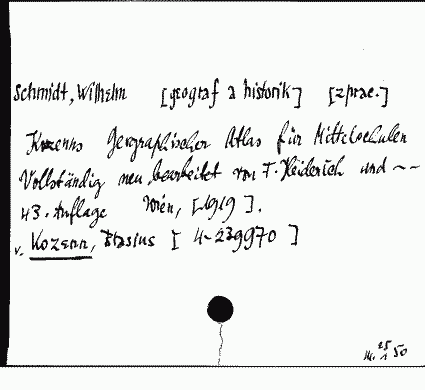 Schmidt, Wilhelm [geograf a historik] [zprac.]
Kozenns Geographischer Atlas für Mittelschulen
Vollständig neu bearbeitet von F. Heiderich und ~~
43. Auflage Wien, [1919].
v. Kozenn, Blasius [4-239970]
50